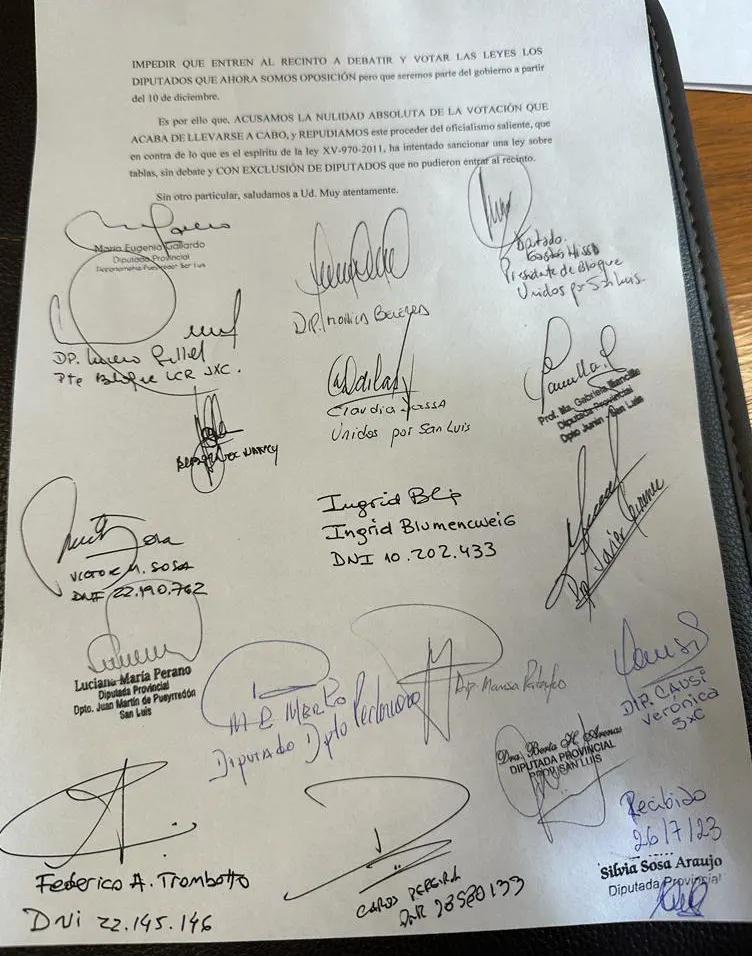 IMPEDIR QUE ENTREN AL RECINTO A DEBATIR Y VOTAR LAS LEYES LOS
DIPUTADOS QUE AHORA SOMOS OPOSICIÓN pero que seremos parte del gobierno a partir
del 10 de diciembre.
Es por ello que, ACUSAMOS LA NULIDAD ABSOLUTA DE LA VOTACIÓN QUE
ACABA DE LLEVARSE A CABO, y REPUDIAMOS este proceder del oficialismo saliente, que
en contra de lo que es el espiritu de la ley XV-970-2011, ha intentado sancionar una ley sobre
tablas, sin debate y CON EXCLUSIÓN DE DIPUTADOS que no pudieron entrar al recinto.
Sin otro particular, saludamos a Ud. Muy atentamente.
Maria Eugenia Gallardo
Diputada Provincial
Departamento Pueyrredon San Luis
DIP. MONICA
Diputado
Presidente de Bloque
Unidos por San Luis
DP.
Pte Bloque UCR JXC.
Claudia
Unidos por San Luis
Prof. Ma. Gabriela
Diputada Provincial
Dpto Junin - San Luis
NANCY
Sosa
VICTOR M. SOSA
DNI 22.190.762
Ingrid
Ingrid Blumencweig
DNI 10.202.433
Javier
Luciana María Perano
Diputada Provincial
Dpto. Juan Martín de Pueyrredón
San Luis
Diputado Dpto Pedernera
Dip. Marisa
DIP. CAUSI
Verónica
JxC
Dra. Berta H. Arenas
DIPUTADA PROVINCIAL
PROV. SAN LUIS
Federico A. Trombotto
DNI 22.145.146
CARLOS PEREIRA
Recibido
26/7/23
Silvia Sosa Araujo
Diputada Provincial